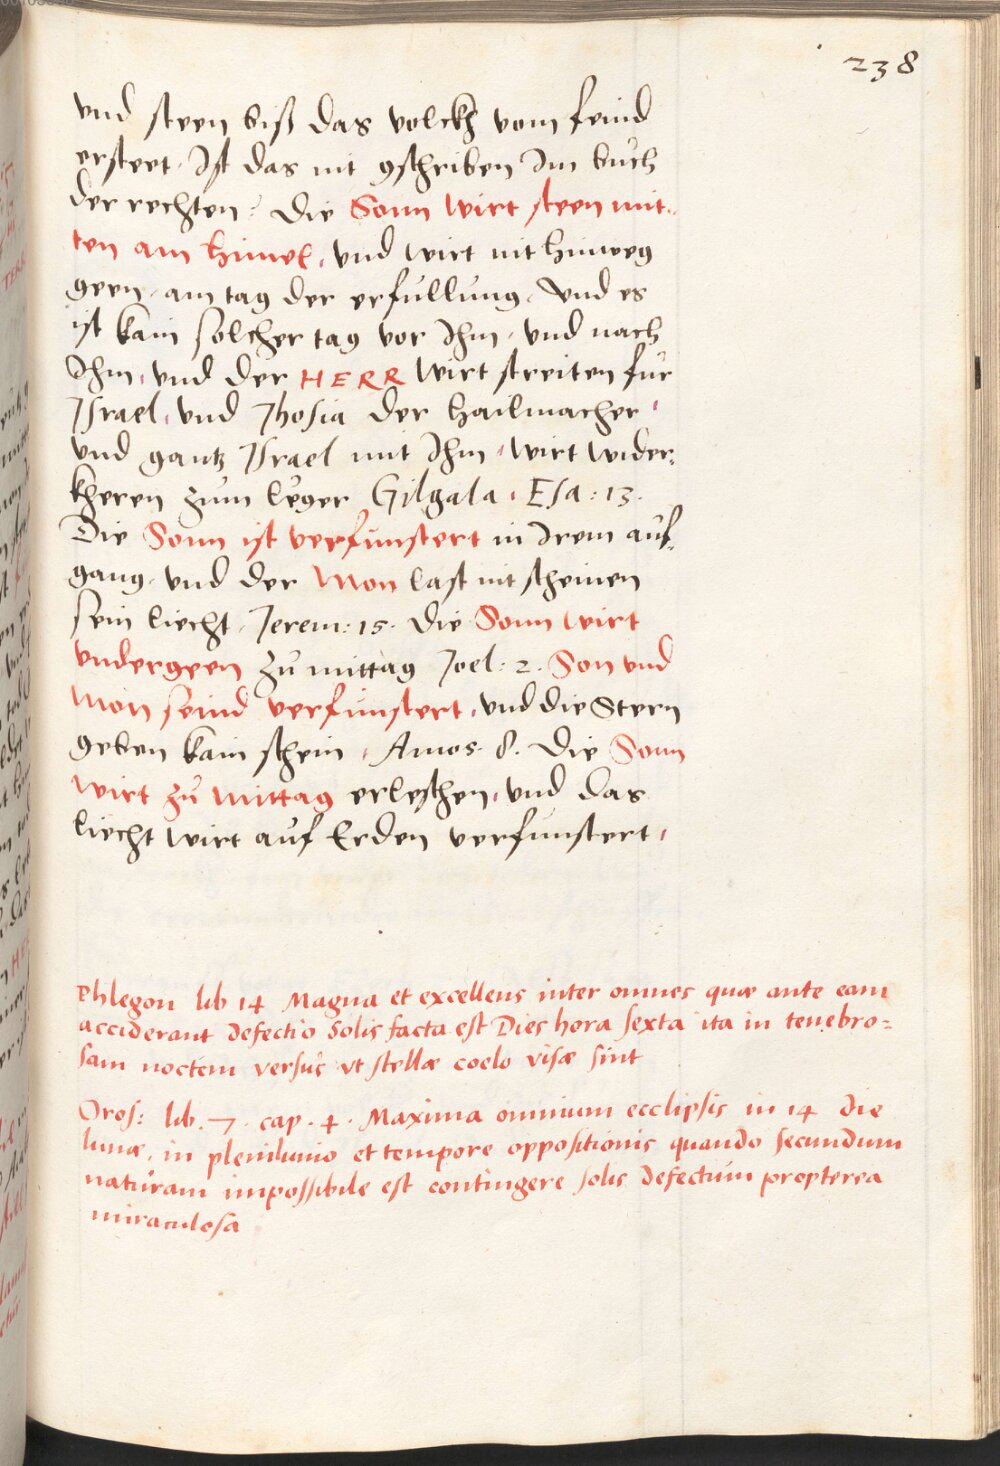 238
vnd steen biß das volckh vom feind
ersteet. Ist das nit gschriben Im buch
der rechten? Die Sonn wirt steen mit-
ten am himel, vnd wirt nit hinweg
geen, am tag der erfullung, Vnd es
ist kain solcher tag vor Ihm, vnd nach
Ihm, vnd der HERR wirt streiten fur
Israel, vnd Jhosia der hailmacher,
vnd gantz Israel mit Ihm, wirt wider-
kheren zum leger Gilgala, Esa: 13.
Die Sonn ist verfunstert in Irem auf-
gang, vnd der Mon last nit scheinen
sein liecht, Jerem: 15. Die Sonn wirt
vndergeen zu mittag Joel: 2. Son vnd
Mon seind verfunstert, vnd die Stern
geben kain schein, Amos. 8. Die Sonn
wirt zu Mittag erleschen, vnd das
liecht wirt auf Erden verfunstert,
Phlegon lib 14 Magna et excellens inter omnes quæ ante eam
acciderant defectio Solis facta est Dies hora sexta ita in tenebro=
sam noctem versus vt stellæ coelo visæ sint
Oros: lib. 7. cap. 4. Maxima omnium ecclipsis in 14 die
lunæ, in plenilunio et tempore oppositionis quando secundum
naturam impossibile est contingere solis defectum propterea
miraculosa